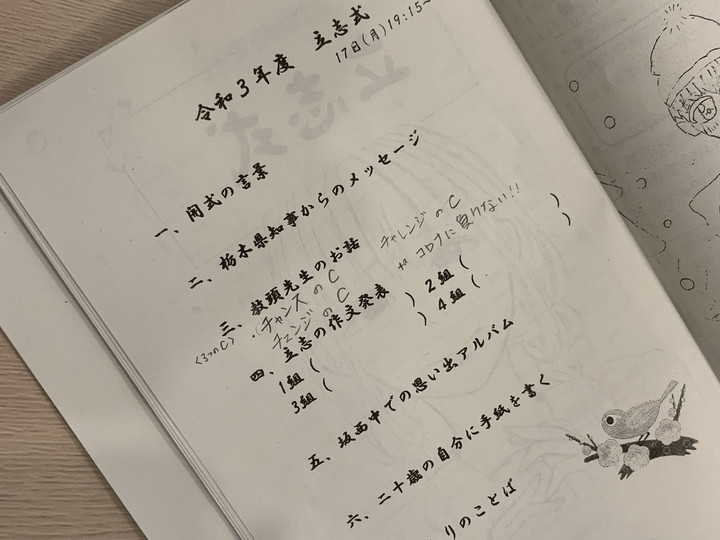 令和3年度 立志式
17日(月)19:15~
一、開式の言葉
二、栃木県知事からのメッセージ
三、教頭先生のお話
チャレンジのC
<3つのC> ・チャンスのC
コロナに負けない!!
チェンジのC
四、立志の作文発表
1組( ) 2組( )
3組( ) 4組( )
五、坂西中での思い出アルバム
六、二十歳の自分に手紙を書く
りのことば